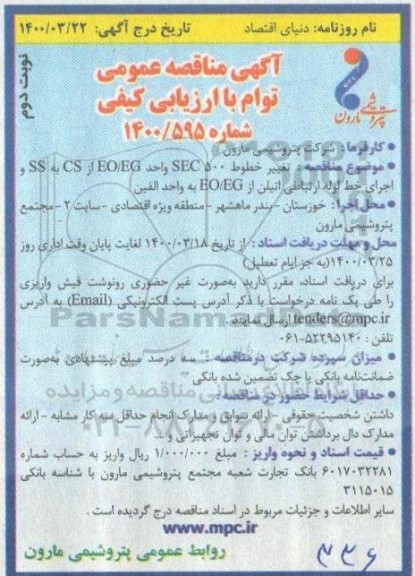 نام روزنامه: دنیای اقتصاد
تاریخ درج آگهی: ۱۴۰۰/۰۳/۲۲
نوبت دوم
آگهی مناقصه عمومی
توام با ارزیابی کیفی
شماره ۱۴۰۰/۵۹۵
پتروشیمی مارون
• کارفرما: شرکت پتروشیمی مارون
• موضوع مناقصه: تغییر خطوط SEC ۵۰۰ واحد EO/EG از CS به SS و
اجرای خط لوله ارتباطی اتیلن از EO/EG به واحد الفین
• محل اجرا: خوزستان - بندر ماهشهر - منطقه ویژه اقتصادی - سایت ۲ - مجتمع
پتروشیمی مارون
محل و مهلت دریافت اسناد: از تاریخ ۱۴۰۰/۰۳/۱۸ لغایت پایان وقت اداری روز
۱۴۰۰/۰۳/۲۵ (به جز ایام تعطیل)
برای دریافت اسناد، مقرر دارید به‌صورت غیر حضوری رونوشت فیش واریزی
را طی یک نامه درخواست با ذکر آدرس پست الکترونیکی (Email) به آدرس
tenders@mpc.ir ارسال نمایند.
تلفن: ۵۲۲۹۵۱۴۰-۰۶۱
• میزان سپرده شرکت درمناقصه: سه درصد مبلغ پیشنهادی به‌صورت
ضمانت‌نامه بانکی یا چک تضمین شده بانکی
• حداقل شرایط حضور در مناقصه:
داشتن شخصیت حقوقی - ارائه سوابق و مدارک انجام حداقل سه کار مشابه - ارائه
مدارک دال برداشتن توان مالی و توان تجهیزاتی و ....
• قیمت اسناد و نحوه واریز: مبلغ ۱/۰۰۰/۰۰۰ ریال واریز به حساب شماره
۶۰۱۷۰۳۲۲۸۱ بانک تجارت شعبه مجتمع پتروشیمی مارون با شناسه بانکی
۳۱۱۵۰۱۵
سایر اطلاعات و جزئیات مربوط در اسناد مناقصه درج گردیده است.
www.mpc.ir
روابط عمومی پتروشیمی مارون
۳۳۶